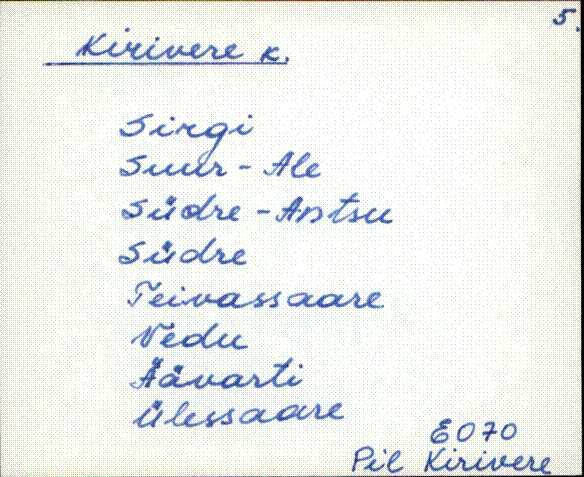 5.
Kirivere k.
Sirgi
Suur-Ale
Südre-Antsu
Südre
Teivassaare
Vedu
Äävarti
Ülessaare
E070
Pil Kirivere